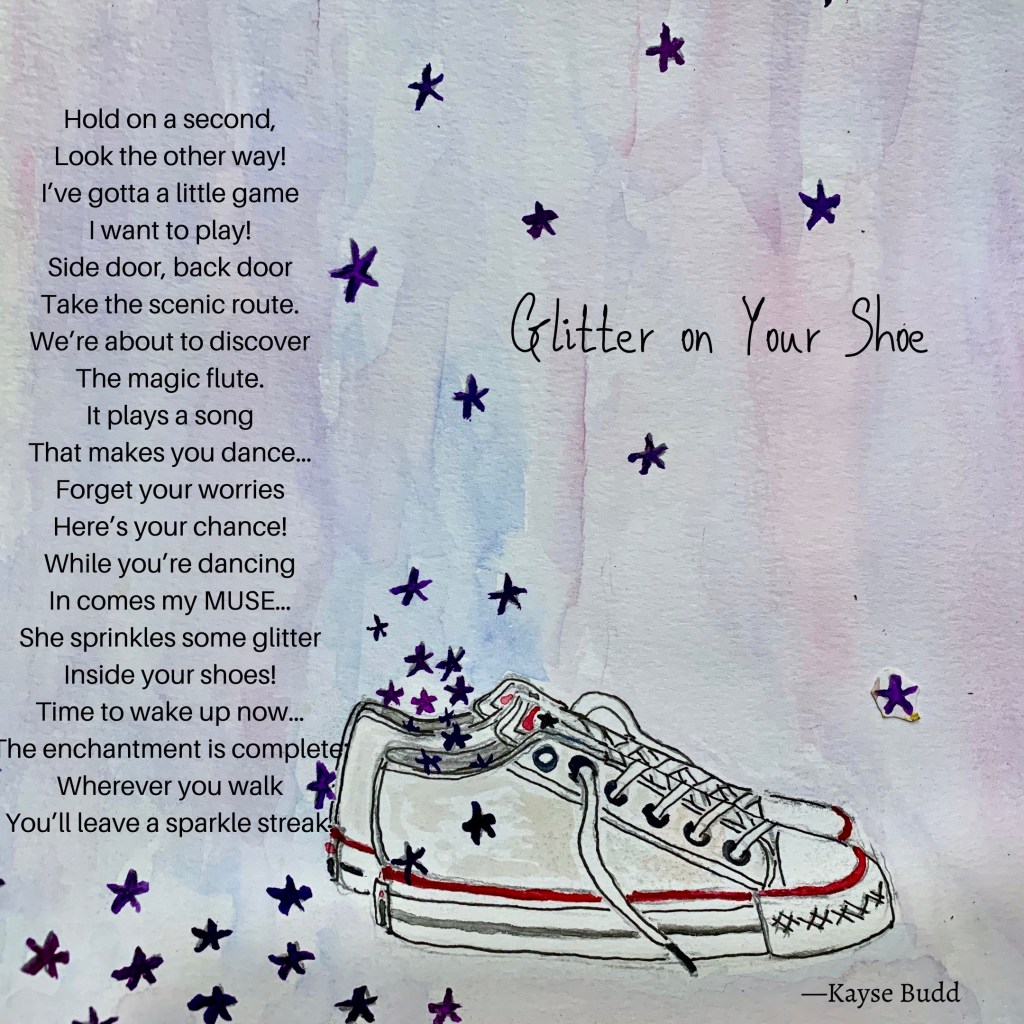 Hold on a second,
Look the other way!
I’ve gotta a little game
I want to play!
Side door, back door
Take the scenic route.
We’re about to discover
The magic flute.
It plays a song
That makes you dance...
Forget your worries
Here’s your chance!
While you’re dancing
In comes my MUSE...
She sprinkles some glitter
Inside your shoes!
Time to wake up now...
The enchantment is complete:
Wherever you walk
You’ll leave a sparkle streak.
Glitter on Your Shoe
—Kayse Budd